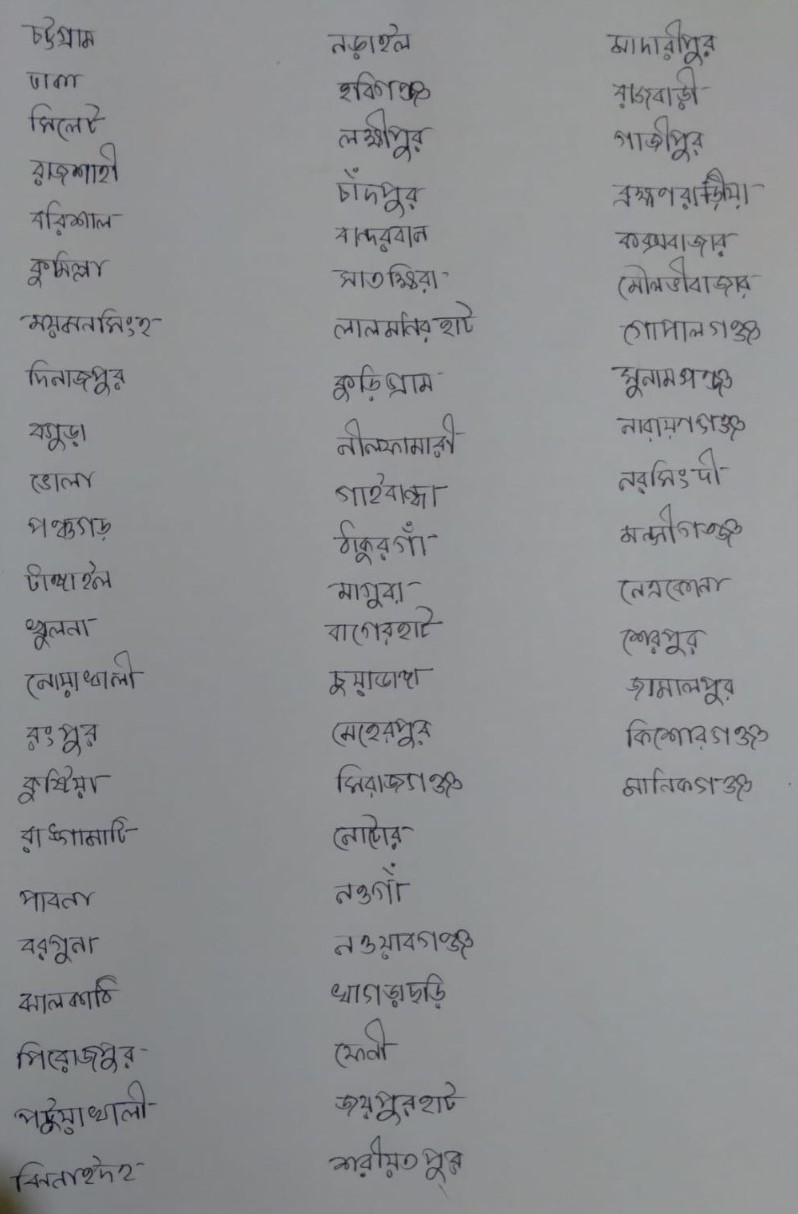 চট্টগ্রাম
ঢাকা
সিলেট
রাজশাহী
বরিশাল
কুমিল্লা
ময়মনসিংহ
দিনাজপুর
বগুড়া
ভোলা
পঞ্চগড়
টাঙ্গাইল
খুলনা
নোয়াখালী
রংপুর
কুষ্টিয়া
রাঙ্গামাটি
পাবনা
বরগুনা
ঝালকাঠি
পিরোজপুর
পটুয়াখালী
ঝিনাইদহ
নড়াইল
হবিগঞ্জ
লক্ষীপুর
চাঁদপুর
বান্দরবান
সাতক্ষিরা
লালমনিরহাট
কুড়িগ্রাম
নীলফামারী
গাইবান্ধা
ঠাকুরগাঁ
মাগুরা
বাগেরহাট
চুয়াডাঙ্গা
মেহেরপুর
সিরাজগঞ্জ
নাটোর
নওগাঁ
নওয়াবগঞ্জ
খাগড়াছড়ি
ফেনী
জয়পুরহাট
শরীয়তপুর
মাদারীপুর
রাজবাড়ী
গাজীপুর
ব্রহ্মণবাড়িয়া
কক্সবাজার
মৌলভীবাজার
গোপালগঞ্জ
সুনামগঞ্জ
নারায়ণগঞ্জ
নরসিংদী
মন্সীগঞ্জ
নেত্রকোনা
শেরপুর
জামালপুর
কিশোরগঞ্জ
মানিকগঞ্জ